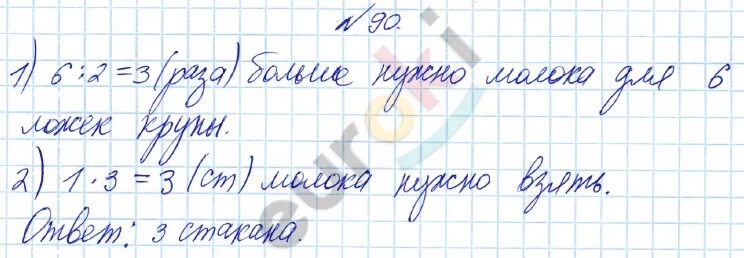 №90.
1) 6:2=3 (раза) больше нужно молока для 6
ложек крупы.
2) 1·3=3 (ст) молока нужно взять.
Ответ: 3 стакана.
euroki